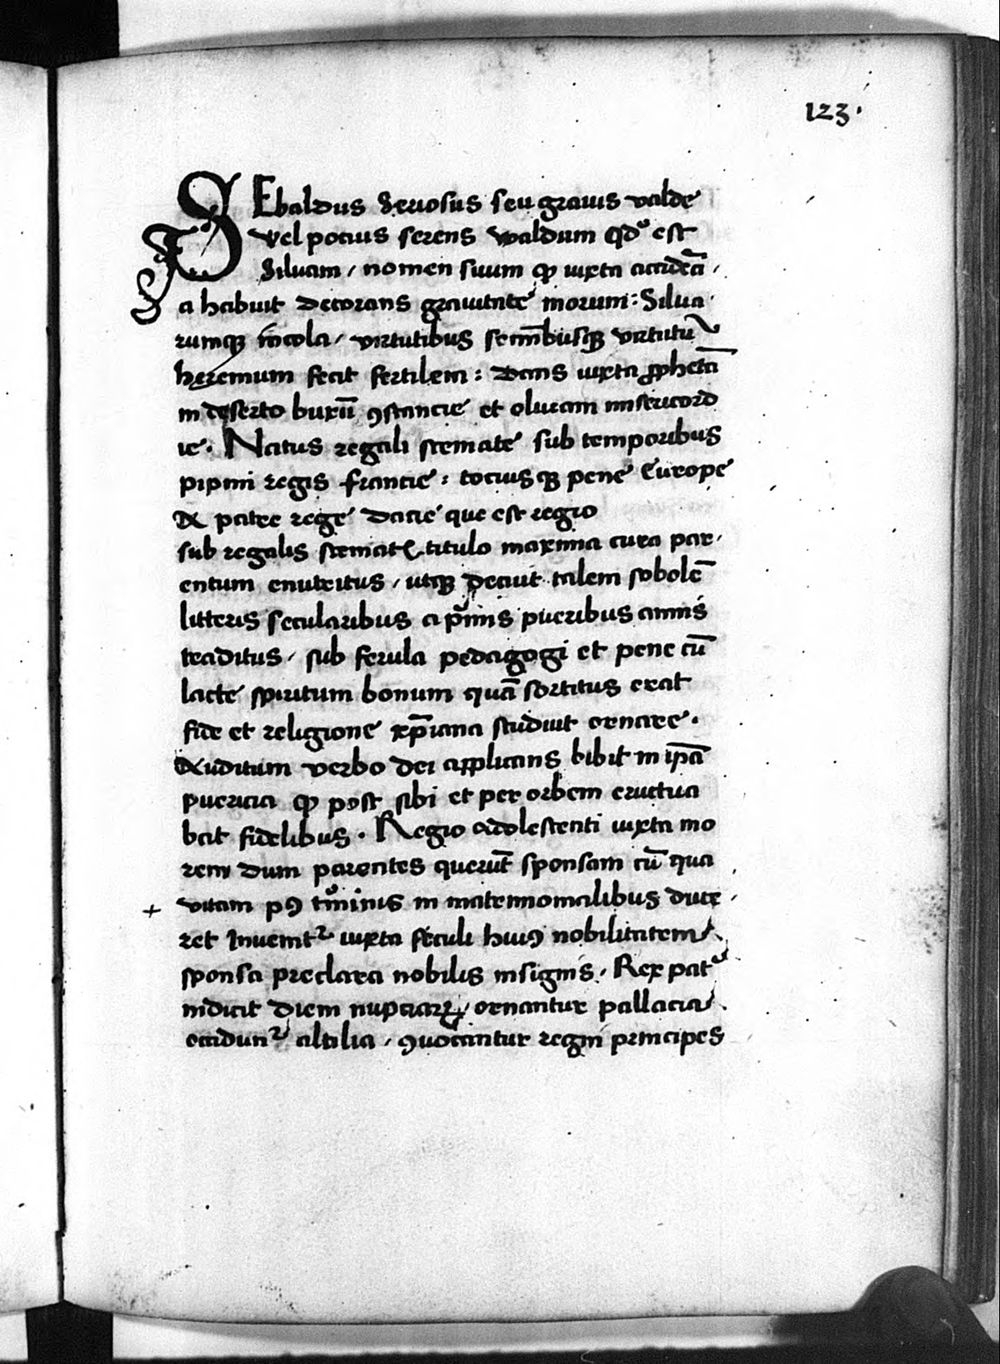 123.
SEbaldus seuosus seu grauis valde
vel pocius serens waldum qdº est
siluam / nomen suum ꝙ iuxta accidēci /
a habuit decorans grauitate morum : Silua
rumqꝫ īcola / virtutibus semībusqꝫ virtutū
heremum fecit fertilem : dans iuxta ꝓphetā
in deserto buxū ꝯstancie et oliuam misericord
ie . Natus regali stemate sub temporibus
pipini regis francie : tociusqꝫ pene Europe
A patre rege dacie que est regio
sub regalis stematꝭ titulo maxima cura par /
entum enutritus / utqꝫ decuit talem sobolē
litteris secularibus a pͥmis pueribus annis
traditus / sub ferula pedagogi et pene cū
lacte spiritum bonum quā sortitus erat
fide et religione xp̄iana studuit ornare .
Auditum verbo dei applicans bibit in ip̄a
puericia ꝙ post sibi et per orbem eructua
bat fidelibus . Regio adolescenti iuxta mo
rem dum parentes querūt sponsam cū qua
+ vitam pꝯ tͦminis in matrimonialibus duce /
ret Inuenitᷣ iuxta seculi huiꝯ nobilitatem
sponsa preclara nobilis insignis . Rex patᷣ
indicit diem nupciaꝝ / ornantur pallacia .
occidunᷣ altilia / ꝯuocantur regni principes